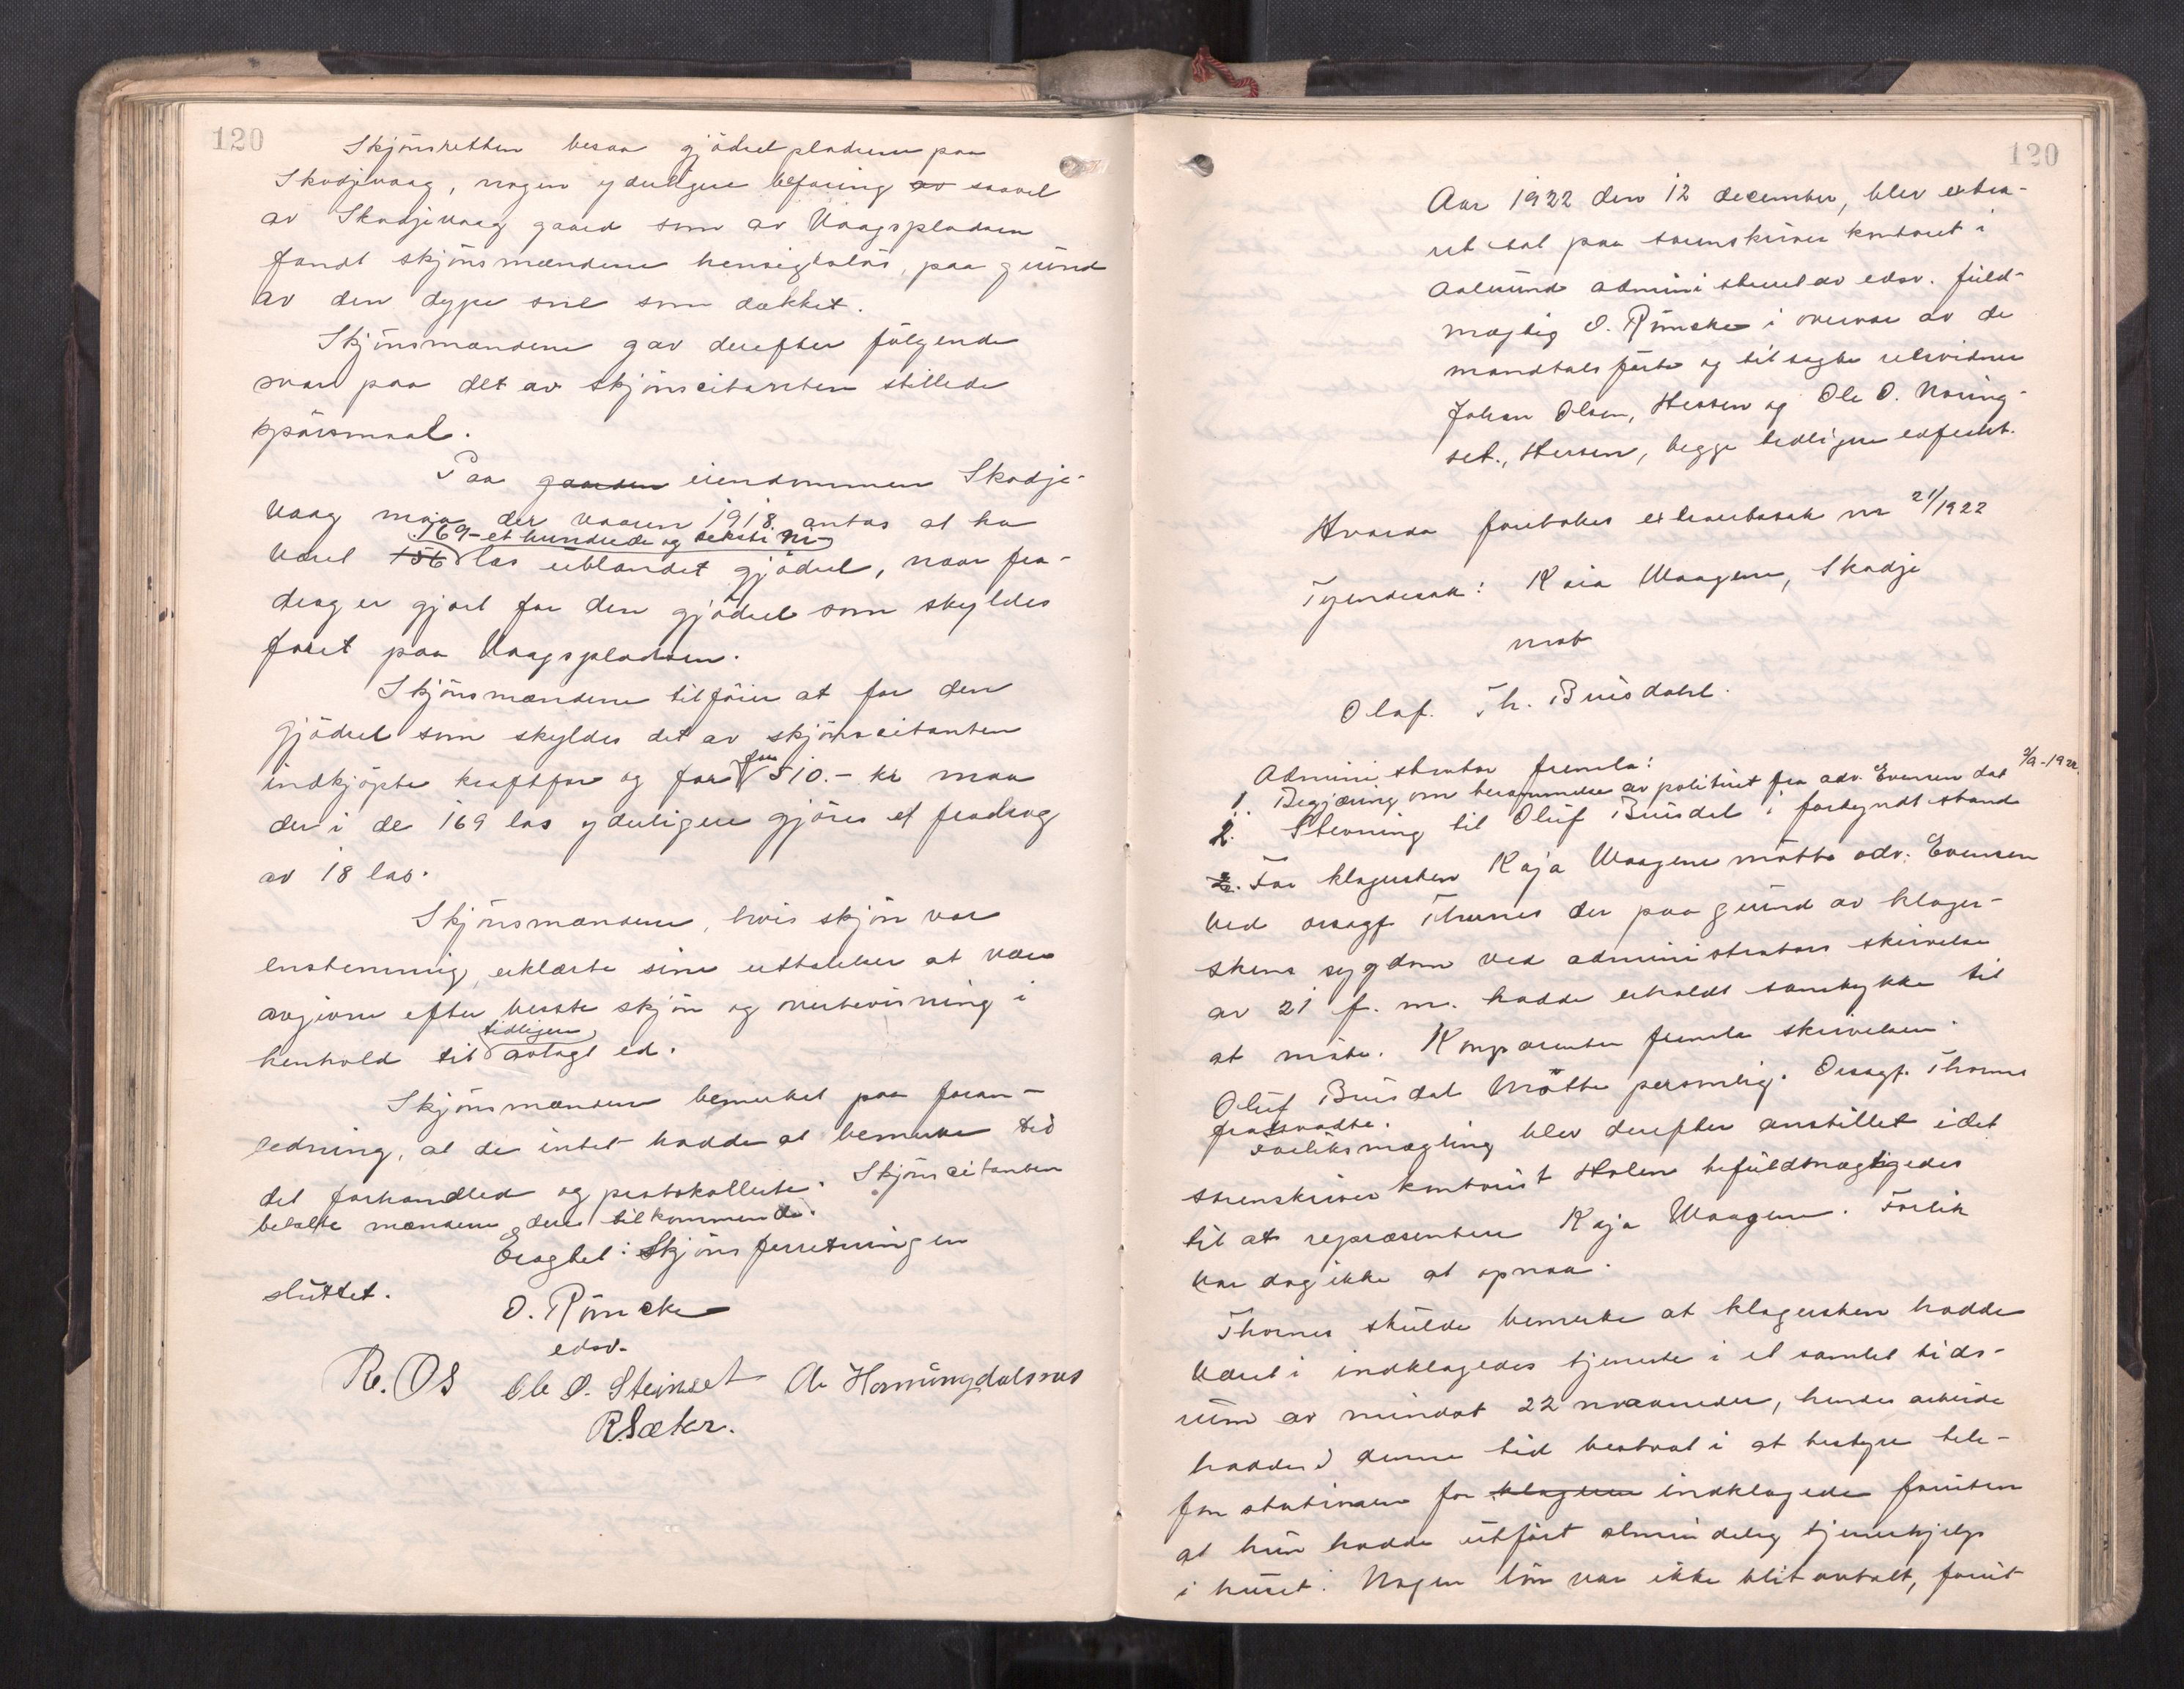 120
Skjönsretten besaa gjödselpladsene paa
Skodjevaag, nogen yderligere befaring av saavel
av Skodjevaag gaard som av Vaagspladsen
fandt skjönsmændene hensigtslös, paa grund
av den dype sne som dækket.
Skjönsmændene gav derefter fölgende
svar paa det av skjönscitanten stillede
spörsmaal.
Paa gaarden eiendommen Skodje-
vaag maa der vaaren 1918 antas at ha
169 - et hundrede og seksti ni -
været 156 las ublandet gjödsel, naar fra-
drag er gjort for den gjödsel som skyldes
foret paa Vaagspladsen.
Skjönsmændene tilföier at for den
gjödsel som skyldes det av skjönscitanten
indkjöpte kraftfor og for for 510.- kr maa
der i de 169 las yderligere gjöres et fradrag
av 18 las.
Skjönsmændene, hvis skjön var
enstemmig, erklærte sine uttalelser at være
avgivne efter beste skjön og overbevisning i
tidligere
henhold til avlagt ed.
Skjönsmændene bemerket paa foran-
ledning, at de intet hadde at bemerke ted
det forhandled og protokollerte. Skjönscitanten
betalte mændene deres tilkommende.
Eragtet: Skjönsforretningen
sluttet.
O. Römcke
edsv.
R. OS Ole O. Steinset A. Hornungdalsnes
R. Sæter.
120
Aar 1922 den 12 december, blev extra-
ret sat paa sorenskriver kontoret i
Aalesund administreret av edsv. fuld-
mægtig O. Römcke i overvær av de
mandtalsförte og tilsagte retsvidner
Johan Olsen, Hessen og Ole O. Noring-
set, Hessen, begge tidligere edfæstet.
Hvorda foretokes extraretssak nr 21/1922
Tyendesak: Kaia Waagene, Skodje
mot
Olaf. Th. Buisdahl.
Administrator fremla:
1. Begjæring om berammelse av politiret fra adv. Evensen dat 2/9-1922.
2. Stevning til Oluf Buisdal i forkyndt stand
2. For klagersken Kaja Waagene mötte adv. Evensen
ved orsagf. Thornes der paa grund av klager-
skens sygdom ved administrators skrivelse
av 21 f. m. hadde erholdt samtykke til
at möte. Komparenten fremla skrivelsen.
Oluf Buisdal mötte personlig. Orsagf. Thornes
frassraadte.
Forliksmægling blev derefter anstillet idet
sorenskriver kontorist Holen befuldmægtigedes
til at repræsentere Kaja Waagene. Forlik
var dog ikke at opnaa.
Thornes skulde bemerke at klagersken hadde
været i indklagedes tjeneste i et samlet tids-
rum av mindst 22 maaneder, hendes arbeide
hadde i denne tid bestaat i at bestyre tele-
fon stationen for klageren indklagede foruten
at hun hadde utfört almindelig tjenerhjelp
i huset. Nogen lön var ikke blit avtalt, forut